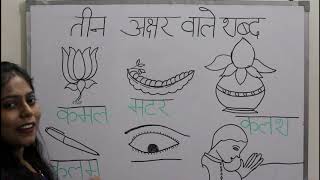 तीन अक्षर वाले शब्द
कमल मटर कलश
कलम